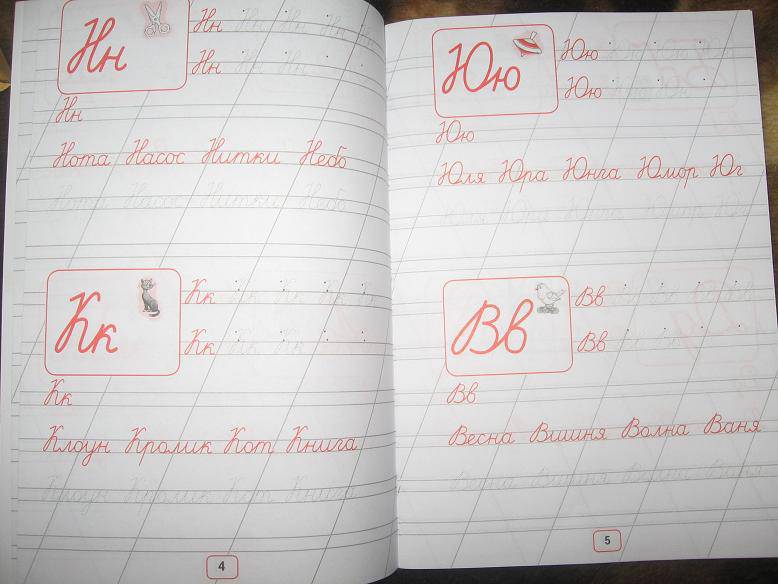 Нн Нн Нн Нн Нн Нн
Нн Нн Нн
Нн
Нота Насос Нитки Небо
Нота Насос Нитки Небо
Кк Кк Кк Кк Кк Кк
Кк Кк Кк
Кк
Клоун Кролик Кот Книга
Клоун Кролик Кот Книга
4
Юю Юю
Юю
Юю
Юля Юра Юнга Юмор Юг
Юля Юра Юнга Юмор Юг
Вв Вв
Вв
Вв
Весна Вишня Волна Ваня
Весна Вишня Волна Ваня
5